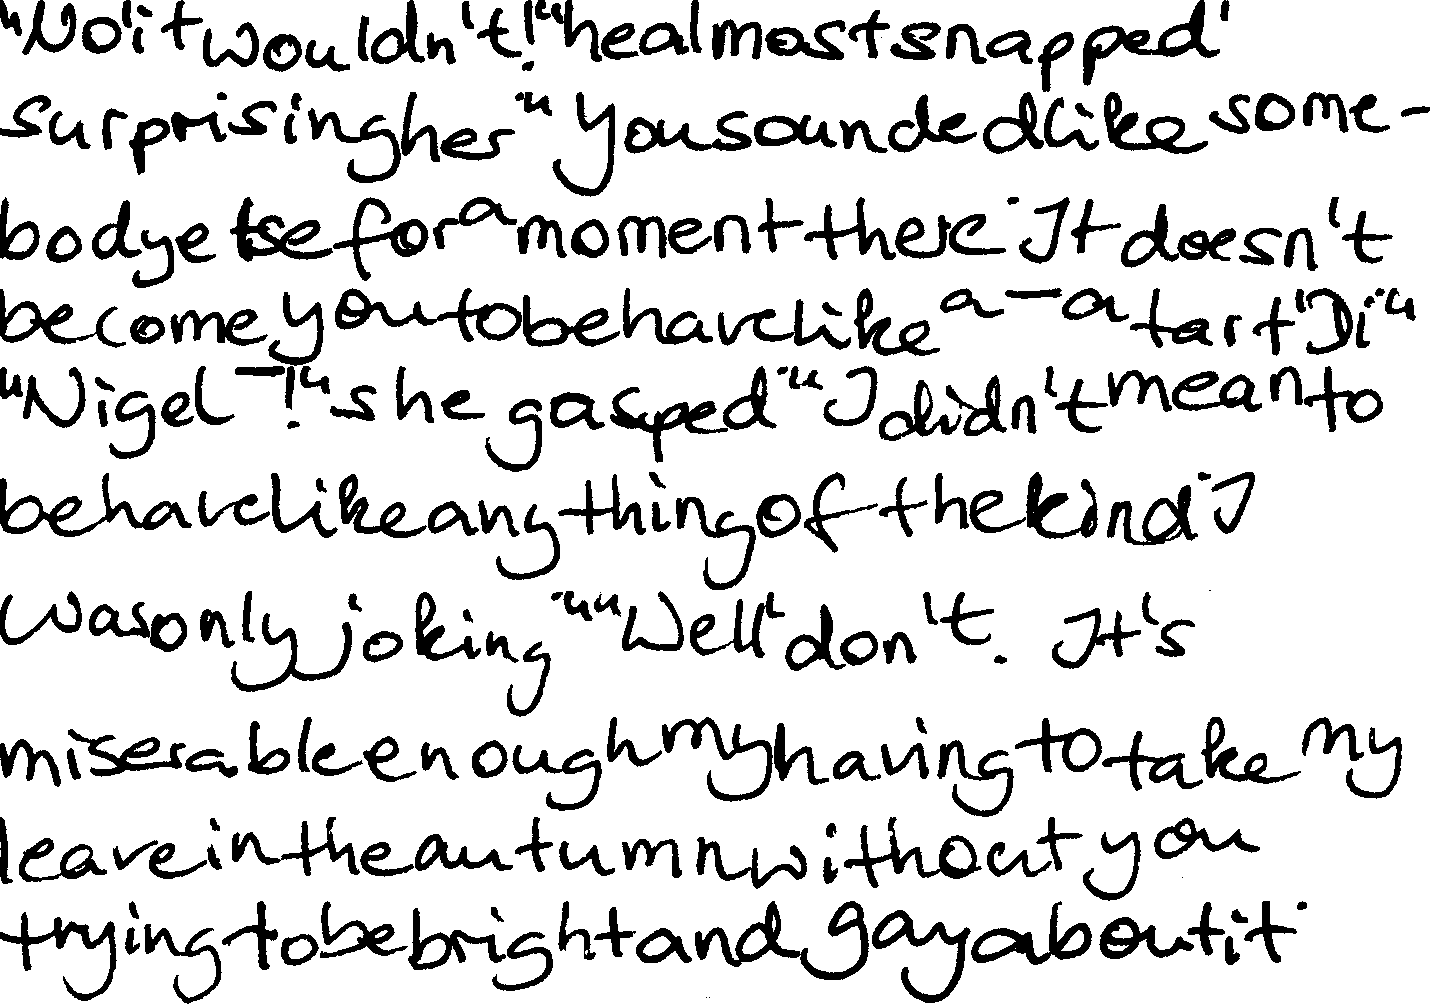 "No, it wouldn't!" he almost snapped,
surprising her. "You sounded like some-
body else for a moment there. It doesn't
become you to behave like a - a tart, Di."
"Nigel -!" she gasped. "I didn't mean to
behave like anything of the kind. I
was only joking." "Well, don't. It's
miserable enough my having to take my
leave in the autumn without you
trying to be bright and gay about it.